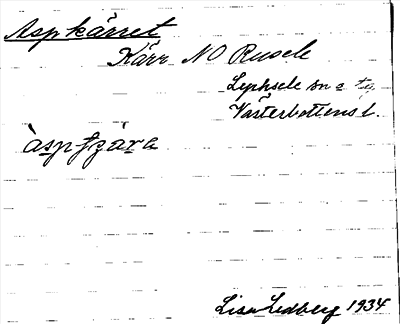 Aspkärret
Kärr NO Rusele
Lycksele sn o tg
Västerbottens l.
àspt̯s̯ära
Lisa Lidberg 1934